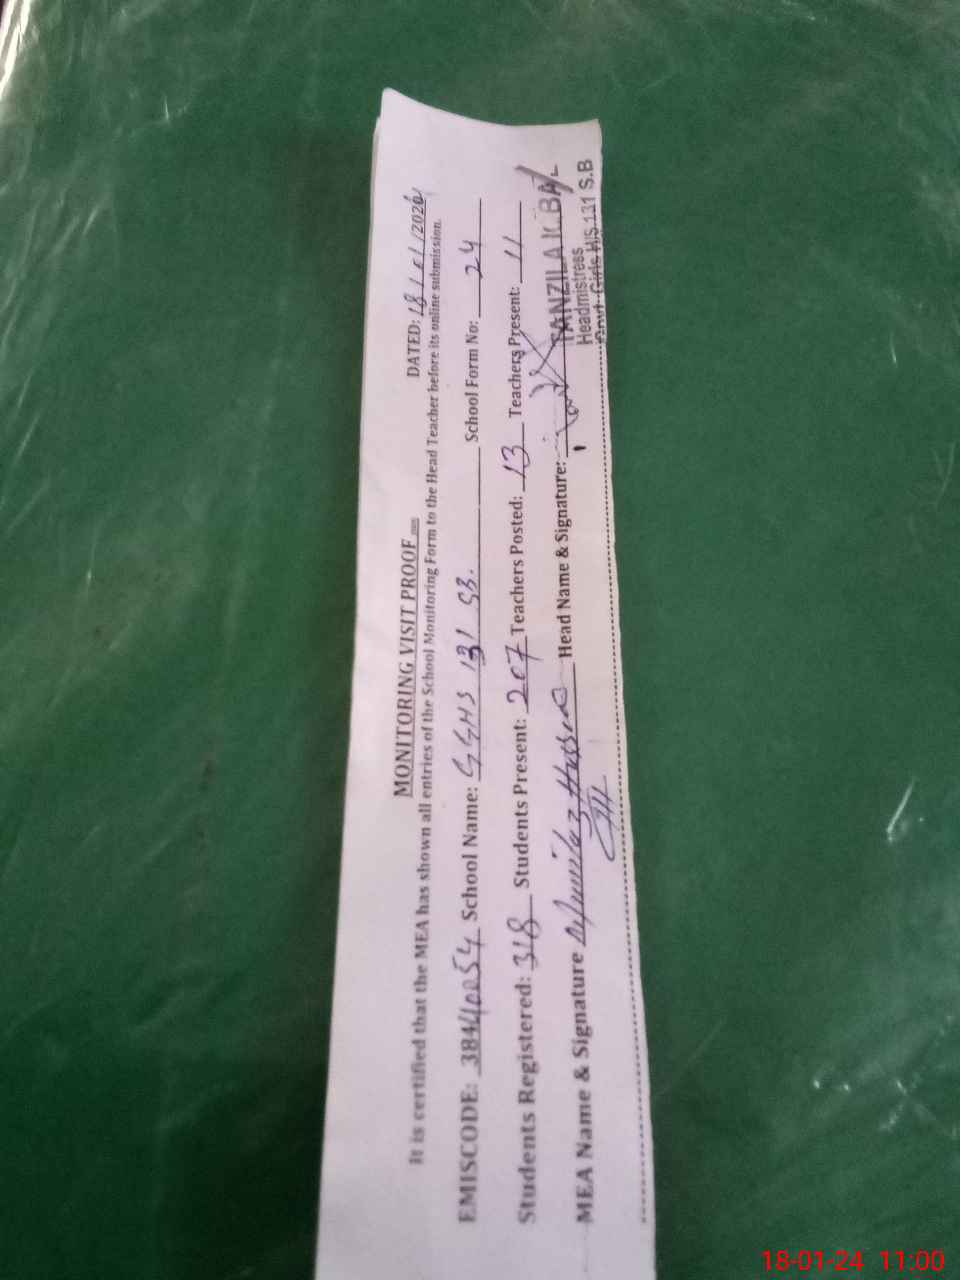 MONITORING VISIT PROOF
DATED: 18/01/2024
It is certified that the MEA has shown all entries of the School Monitoring Form to the Head Teacher before its online submission.
EMISCODE: 38440054 School Name: GGHS 131 SB. School Form No: 24
Students Registered: 318 Students Present: 207 Teachers Posted: 13 Teachers Present: 11
MEA Name & Signature Head Name & Signature:
TANZILA IQBAL
Headmistress
Govt. Girls H/S 131 S.B
18-01-24 11:00